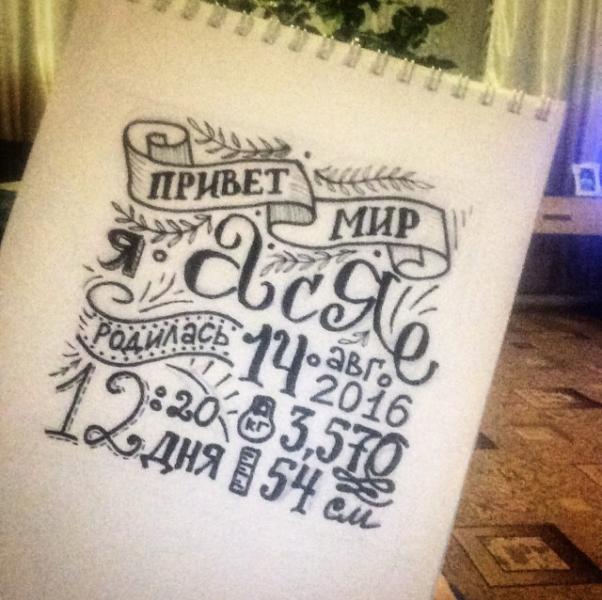 ПРИВЕТ МИР
Я Ася
РОДИЛАСЬ 14 авг. 2016
12:20 ДНЯ
кг 3,570
54 см